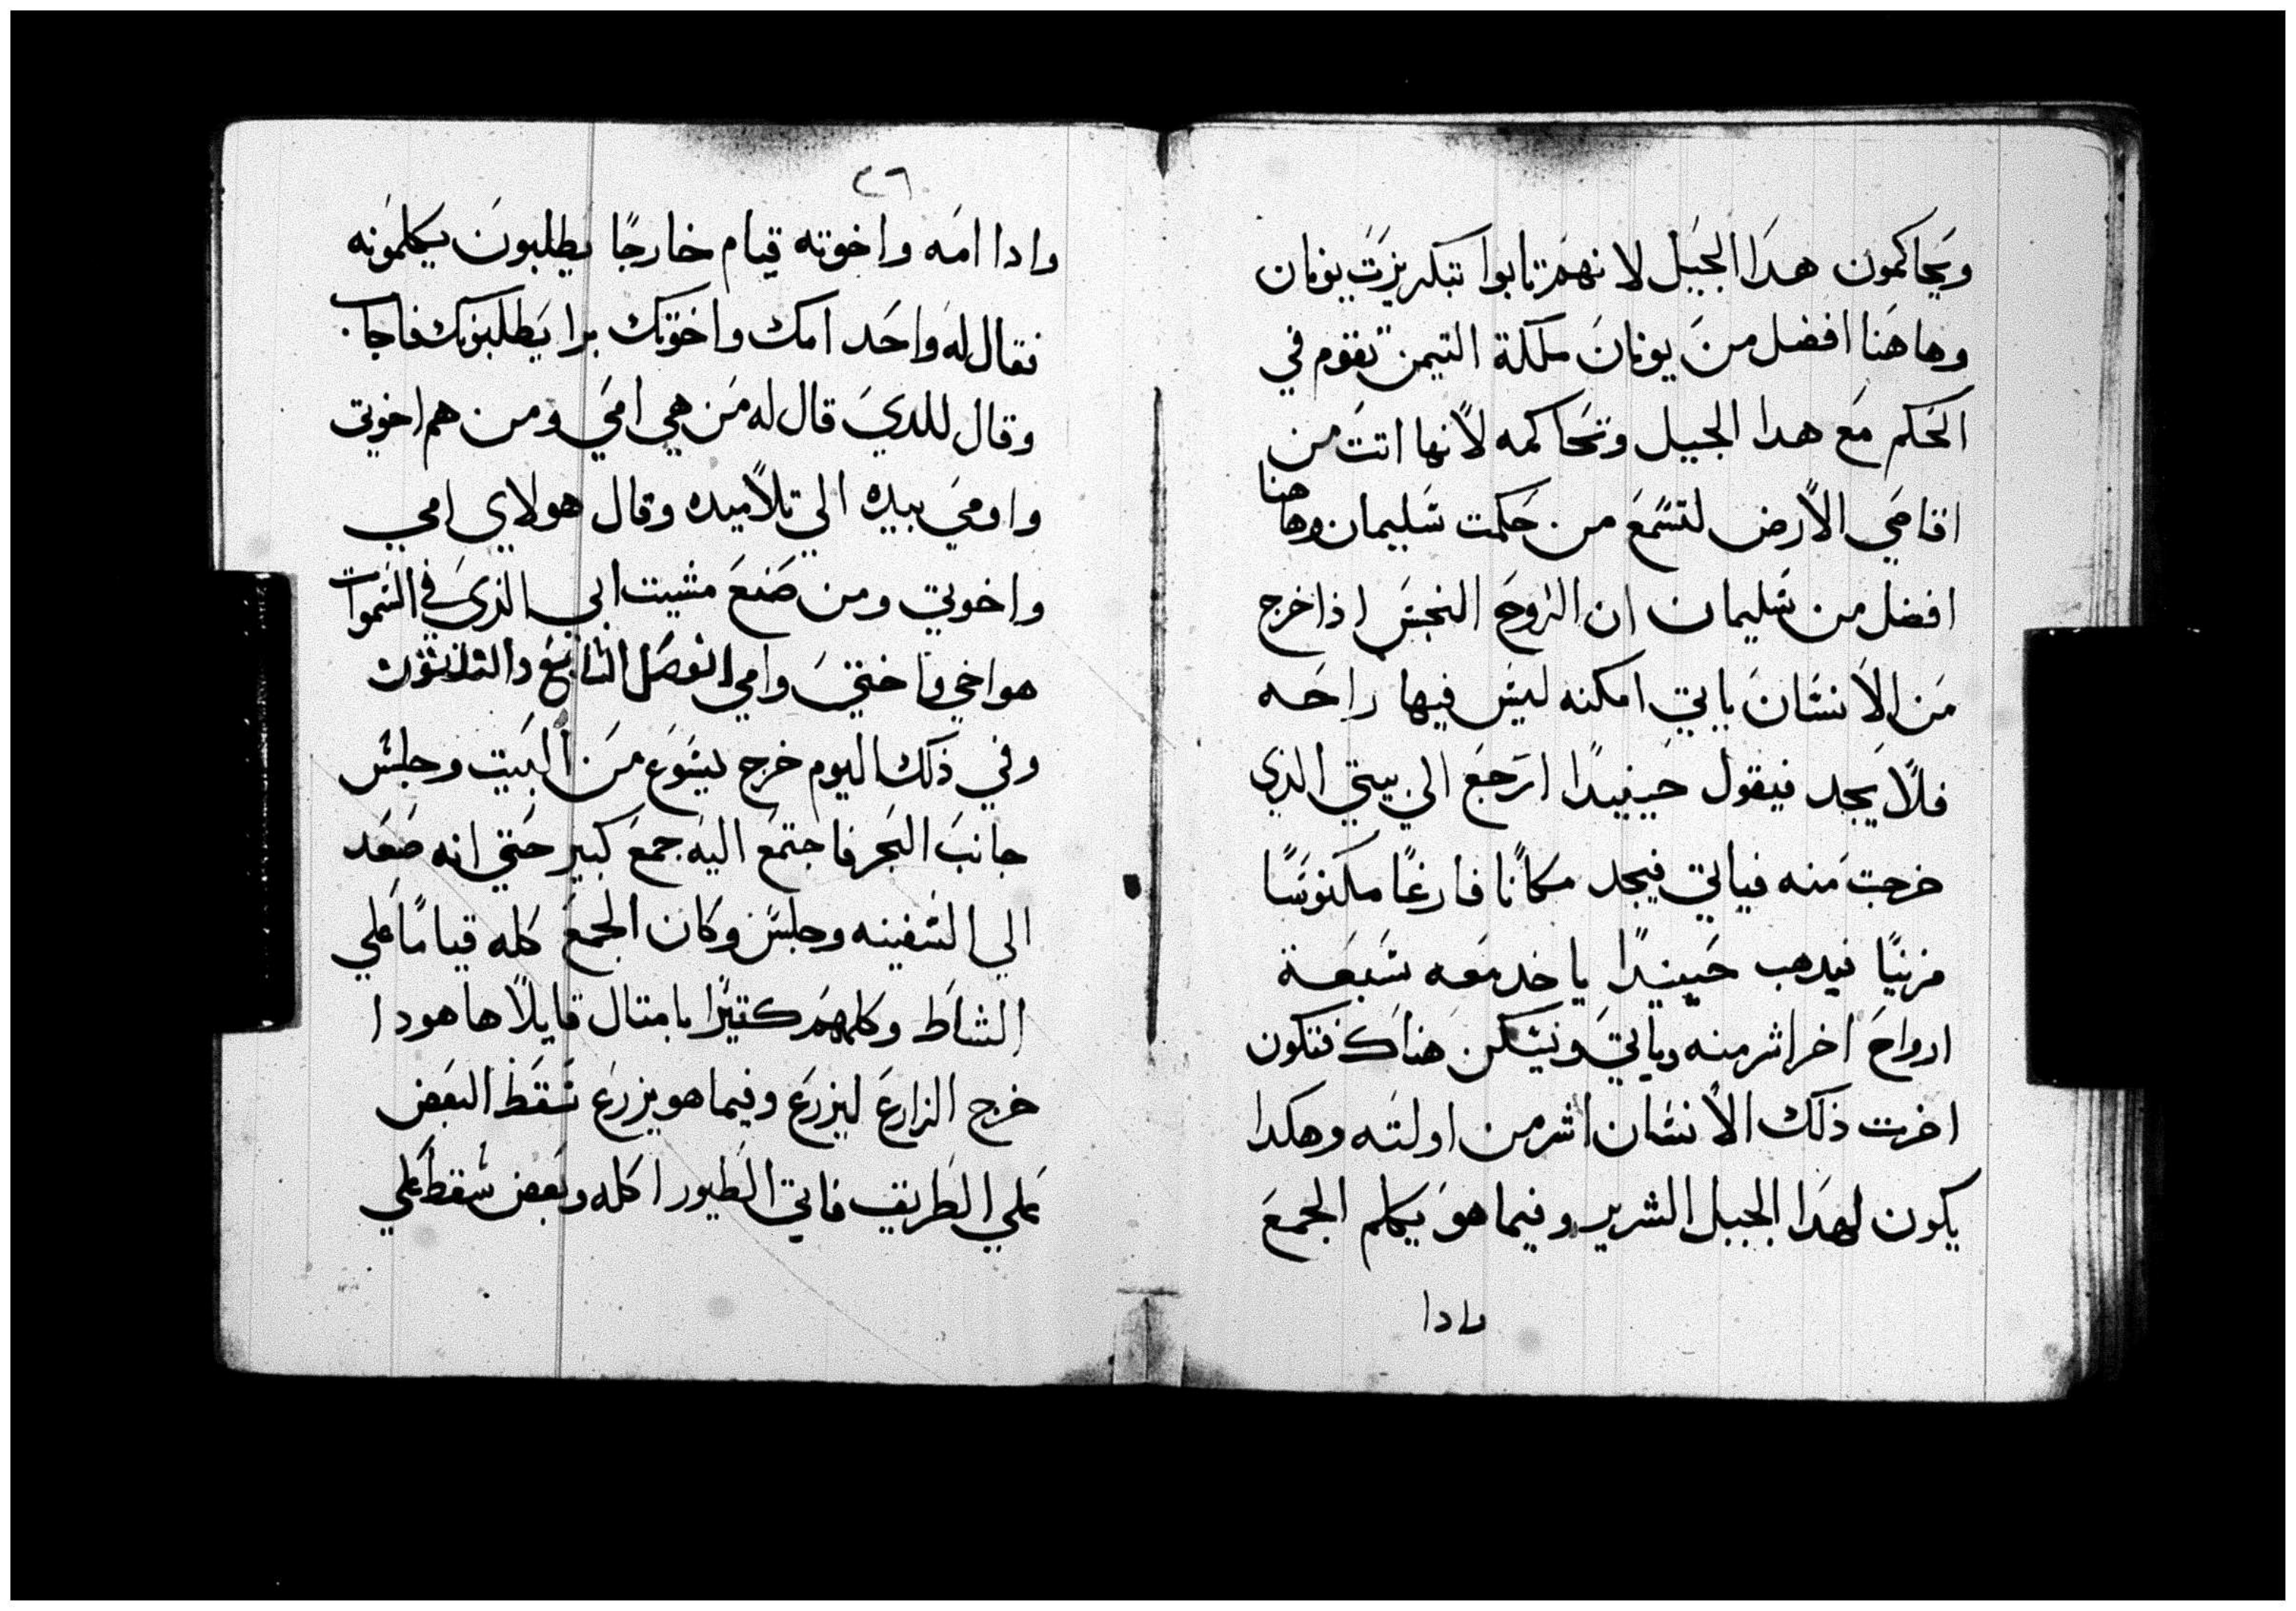 ويحاكمون هدا الجيل لانهم تابوا بتكريزت يونان
وهاهنا افضل من يونان ملكة التيمن تقوم في
الحكم مع هدا الجيل وتحاكمه لانها اتت من
اقاصي الارض لتسمع من حكمت سليمان وهاهنا
افضل من سليمان ان الروح النجس اذا خرج
من الانسان ياتي امكنه ليس فيها راحه
فلا يجد فيقول حينيدا ارجع الي بيتي الذي
خرجت منه فياتي فيجد مكانا فارغا مكنوسا
مزينا فيدهب حينيدا ياخد معه سبعة
ارواح اخر اشر منه وياتي ويسكن هناك فتكون
اخرت ذلك الانسان اشر من اولته وهكدا
يكون لهدا الجيل الشرير وفيما هو يكلم الجمع
وادا
٢٦
وادا امه واخوته قيام خارجا يطلبون يكلمونه
فقال له واحد امك واخوتك برا يطلبونك فاجاب
وقال للدي قال له من هي امي ومن هم اخوتي
واومي بيده الي تلاميده وقال هولاي امي
واخوتي ومن صنع مشيت ابي الذي في السموات
هو اخي واختي وامي الفصل التاسع والثلثون
وفي ذلك اليوم خرج يسوع من البيت وجلس
جانب البحر فاجتمع اليه جمع كبير حتي انه صعد
الي السفينه وجلس وكان الجمع كله قياما علي
الشاط وكلمهم كتيرا بامتال قايلا هاهودا
خرج الزارع ليزرع وفيما هو يزرع سقط البعض
علي الطريق فاتي الطيور اكله وبعض سقط علي